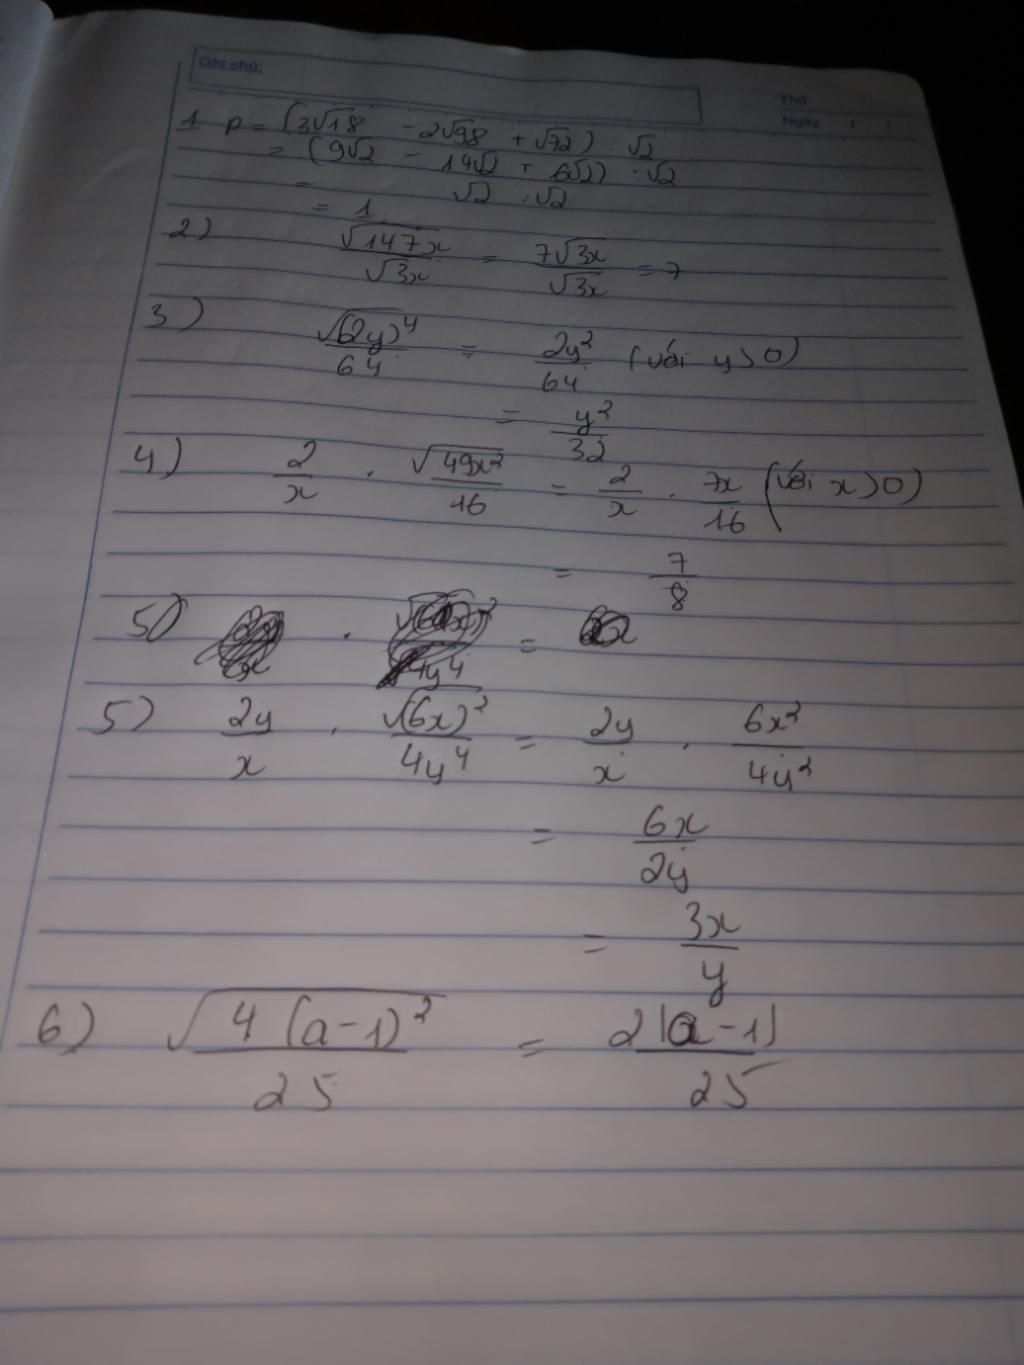 Ghi chú:
Thứ
Ngày / /
1 P = (3√18 - 2√98 + √72) : √2
= (9√2 - 14√2 + 6√2) : √2
= √2 : √2
= 1
2) √147x / √3x = 7√3x / √3x = 7
3) √(2y)⁴ / 64 = 2y² / 64 (với y > 0)
= y² / 32
4) 2 / x . √49x² / 16 = 2 / x . 7x / 16 (với x > 0)
= 7 / 8
5) . =
5) 2y / x . √(6x)² / 4y⁴ = 2y / x . 6x² / 4y²
= 6x / 2y
= 3x / y
6) √4(a-1)² / 25 = 2|a-1| / 25